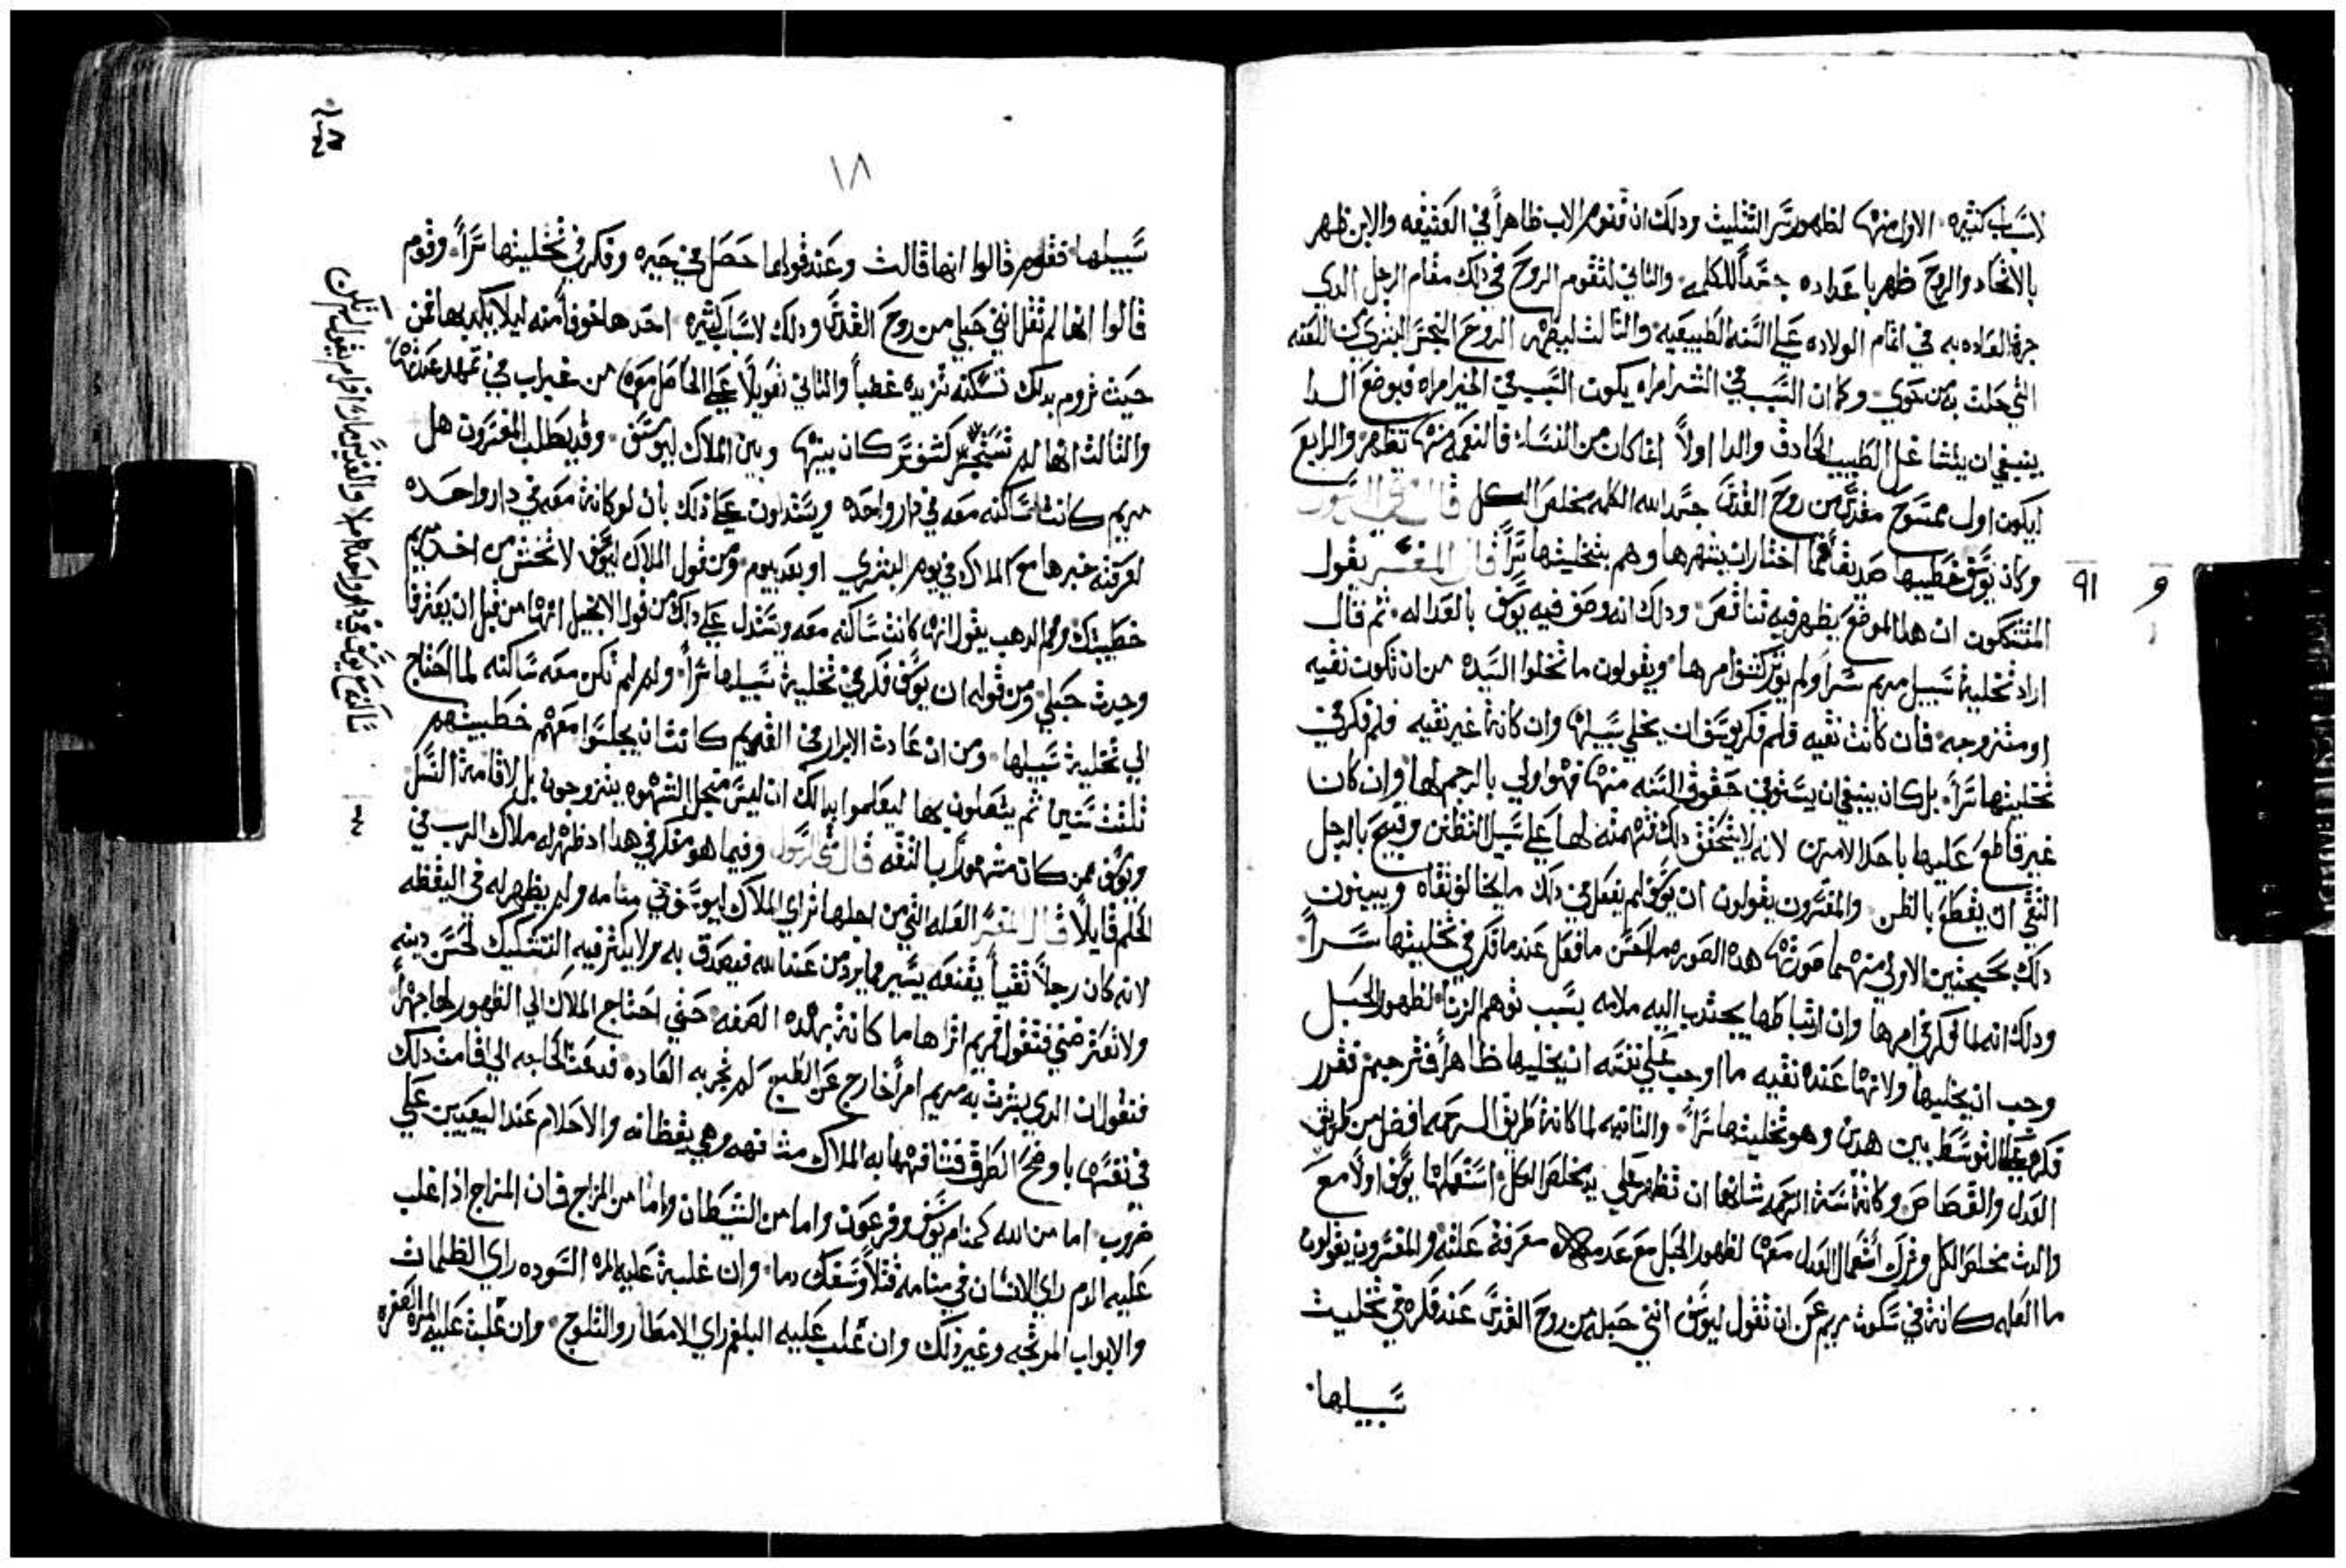 لاسباب كثيره الاول منها لظهور سر التثليث ودلك ان قنوم الاب ظاهراً في العتيقه والابن ظهر
بالاتحاد والروح ظهر باعداده جسداً للكلمه والثاني لتقوم الروح في دلك مقام الرجل الدي
جرة العاده به في اتمام الولاده علي السنه الطبيعيه والثالث ليطهر الروح النجس البشري من اللعنه
التي حلت به من حوي وكما ان السبب في الشر امراه يكون السبب في الخير امراه فبوضع الدا
ينبغي ان يتشاغل الطبيب الحادق والدا اولاً انما كان من النسا فالنعمه منها تظهر والرابع
ليكون اول ممسوح مقدس من روح القدس جسد الله الكلمه مخلص الكل قال متي الرسول
وكان يوسف خطيبها صديقاً فما اختار ان يشهرها وهم بتخليتها سراً قال المفسر يقول
المتشككون ان هدا الموضع يظهر فيه تناقص ودلك انه وصف فيه يوسف بالعداله ثم قال
اراد تخلية سبيل مريم سراً ولم يوثر كشف امرها ويقولون ما تخلوا السيده من ان تكون نقيه
او متزوجه فان كانت نقيه فلم فكر يوسف ان يخلي سبيلها وان كانة غير نقيه فلم فكر في
تخليتها سراً بل كان ينبغي ان يستوفي حقوق السنه منها فهوا ولي بالرجم لها وان كان
غير قاطع عليها باحد الامرين لانه لا يتحقق دلك فتهمته لها علي سبيل التظنن وقبيح بالرجل
التقي ان يقطع بالظن والمفسرون يقولون ان يوسف لم يفعل في دلك ما يخالف تقاه ويبينون
دلك بحجتين الاولي منهما صورتها هده الصوره ما احسن ما فعل عندما فكر في تخليتها سراً
ودلك انه لما فكر في امرها وان ارتباطها يجتدب اليه ملامه بسبب توهم الزنا لظهور الحبل
وجب ان يخليها ولانها عنده نقيه ما اوجب علي نفسه ان يخليها ظاهراً فترجم تقرر
فكره علي التوسط بين هدين وهو تخليتها سراً والثانيه لما كانة طريق الرحمه افضل من طريق
العدل والقصاص وكانة سنة الرحمه شانها ان تظهر علي يد مخلص الكل استعملها يوسف اولاً مع
والدت مخلص الكل وترك استعمال العدل معها لظهور الحبل مع عدم معرفة علته والمفسرون يقولون
ما العله كانة في سكوت مريم عن ان تقول ليوسف انني حبله من روح القدس عند فكره في تخليت
سبيلها
و
٩١
١٨
سبيلها فقوم قالوا انها قالت وعند قولها حصل في حيره وفكر في تخليتها سراً وقوم
قالوا انها لم تقل انني حبلي من روح القدس ودلك لاسباب كثيره احدها خوفاً منه ليلا يكدبها فمن
حيث تروم بدلك تسكنه تزيده غطباً والثاني تعويلاً علي الحاصل معها من غير اب في تمهد عدرتها
والثالث انها لم تستجيز كشف سر كان بينها وبين الملاك ليوسف وقد يطلب المفسرون هل
مريم كانت ساكنه معه في دار واحده ويستدلون علي ذلك بان لو كانة معه في دار واحده
لعرفته خبرها مع الملاك في يوم البشري او بعد بيوم ومن قول الملاك ليوسف لا تخش من اخد مريم
خطيبتك وفم الدهب يقول انها كانت ساكنه معه ويستدل علي دلك من قول الانجيل انها من قبل ان يعترفا
وجدت حبلي ومن قوله ان يوسف فكر في تخلية سبيلها سراً ولو لم تكن معه ساكنه لما احتاج
الي تخلية سبيلها ومن ان عادت الابرار في القديم كانت ان يجلسوا معهم خطيبتهم
تلتت سنين ثم يتصلون بها ليعلموا بدالك ان ليس من اجل الشهوه يتزوجون بل لاقامة النسل
ويوسف ممن كان مشهوراً بالثقه قال متي الرسول وفيما هو مفكر في هدا اد ظهر له ملاك الرب في
الحلم قايلاً قال المفسر العله التي من اجلها تراي الملاك ليوسف في منامه ولم يظهر له في اليقظه
لانه كان رجلاً تقياً يقنعه يسير مما يرد من عند الله فيصدق به ولا يكثر فيه التشكيك لحسن دينه
ولا تعترضني فتقول فمريم اتراها ما كانة بهده الصفه حتي احتاج الملاك الي الظهور لها جهراً
فنقول ان الدي بشرت به مريم امراً خارج عن الطبع لم تجر به العاده فدعت الحاجه الي اقامت دلك
في نفسها باوضح الطرق فشافهها به الملاك مشافهه وهي يقظانه والاحلام عند البيعيين علي
ضروب اما من الله كمنام يوسف وفرعون واما من الشيطان واما من المزاج فان المزاج اذا غلب
عليه الدم راي الانسان في منامه قتلاً وسفك دما وان غلبة عليه المره السوده راي الظلمات
والابواب المرتجه وغير ذلك وان غلب عليه البلغم راي الامطار والثلوج وان غلبت عليه المره الصفره